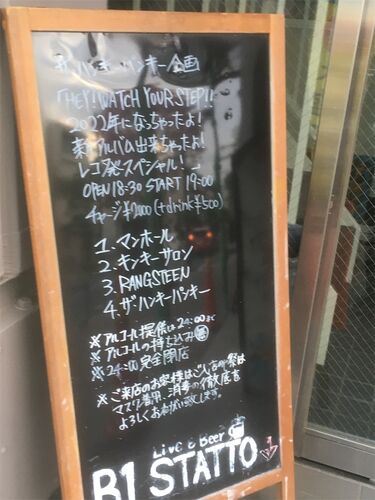 ザ・ハンキーパンキー企画
「HEY! WATCH YOUR STEP!!
2022年になっちゃったよ!
新アルバム出来ちゃったよ!
レコ発スペシャル!」
OPEN 18:30 START 19:00
チャージ¥2000(+drink¥500)
1. マンホール
2. キンキーサロン
3. RANGSTEEN
4. ザ・ハンキーパンキー
※アルコール提供は24:00まで
※アルコールの持ち込み禁
※24:00完全閉店
※ご来店のお客様はご入店の際は
マスク着用、消毒の徹底を
よろしくおねがい致します。
Live & Beer
B1 STATTO